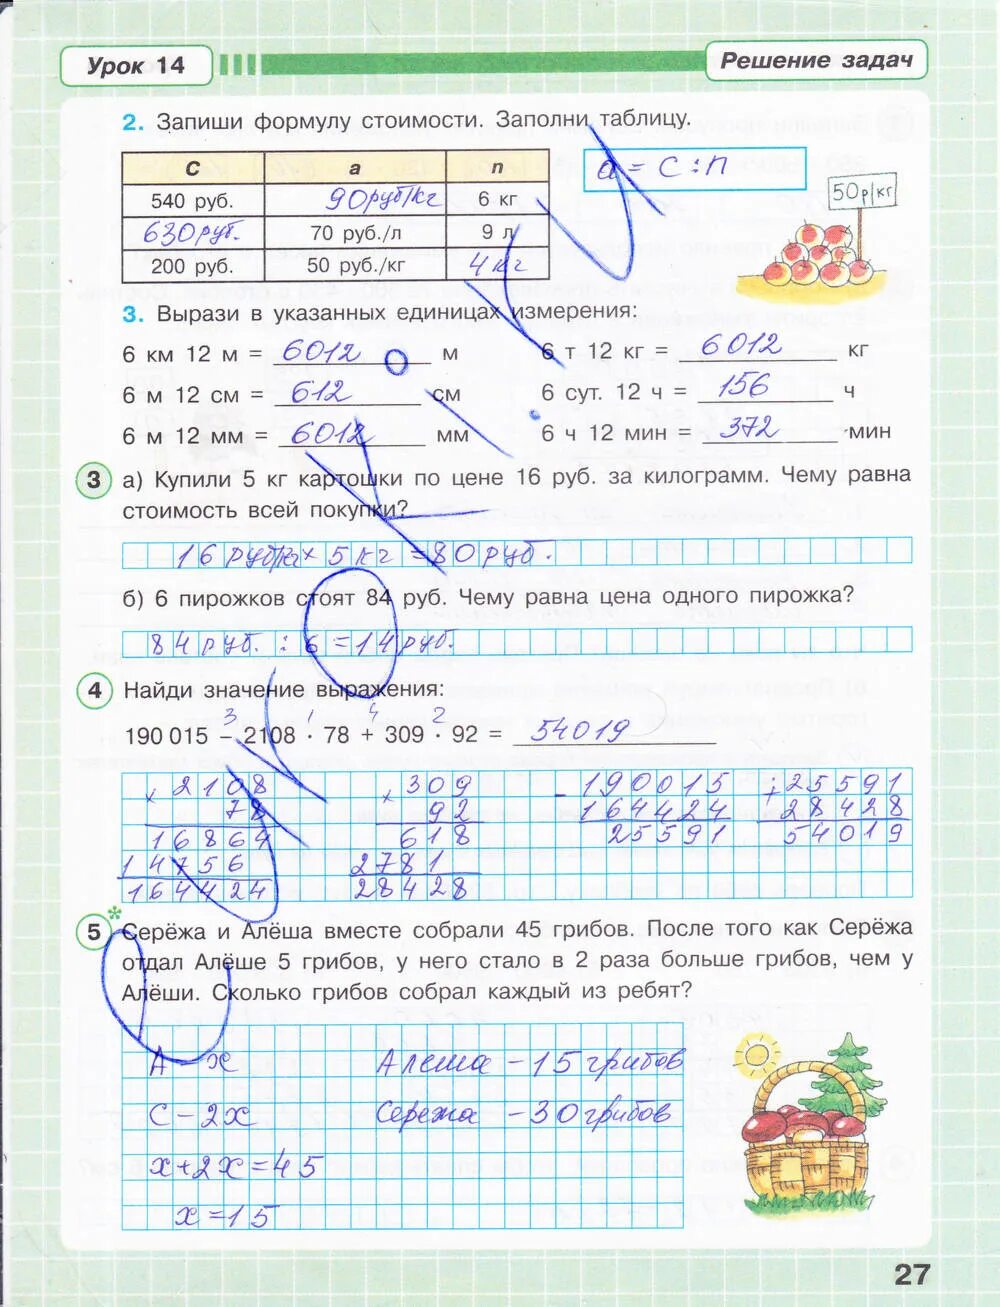 Урок 14
Решение задач
2. Запиши формулу стоимости. Заполни таблицу.
С а n
a = С : П
540 руб. 90руб/кг 6 кг
630руб. 70 руб./л 9 л
200 руб. 50 руб./кг 4 кг
50р/кг
3. Вырази в указанных единицах измерения:
6 км 12 м = 6012 м 6 т 12 кг = 6012 кг
6 м 12 см = 612 см 6 сут. 12 ч = 156 ч
6 м 12 мм = 6012 мм 6 ч 12 мин = 372 мин
3 а) Купили 5 кг картошки по цене 16 руб. за килограмм. Чему равна
стоимость всей покупки?
16 руб/кг × 5 кг = 80 руб.
б) 6 пирожков стоят 84 руб. Чему равна цена одного пирожка?
84 руб. : 6 = 14 руб.
4 Найди значение выражения:
3 1 4 2
190 015 − 2108 · 78 + 309 · 92 = 54019
× 2108 × 309 − 190015 + 25591
78 92 164424 28428
16864 618 25591 54019
14756 2781
164424 28428
5* Серёжа и Алёша вместе собрали 45 грибов. После того как Серёжа
отдал Алёше 5 грибов, у него стало в 2 раза больше грибов, чем у
Алёши. Сколько грибов собрал каждый из ребят?
А − х Алеша − 15 грибов
С − 2х Сережа − 30 грибов
х + 2х = 45
х = 15
27